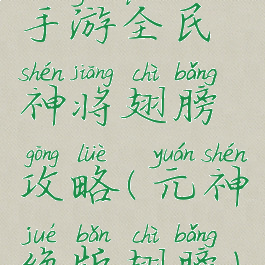 手游全民
shén jiāng chì bǎng
神将翅膀
gōng lüè yuán shén
攻略(元神
jué bǎn chì bǎng
绝版翅膀)